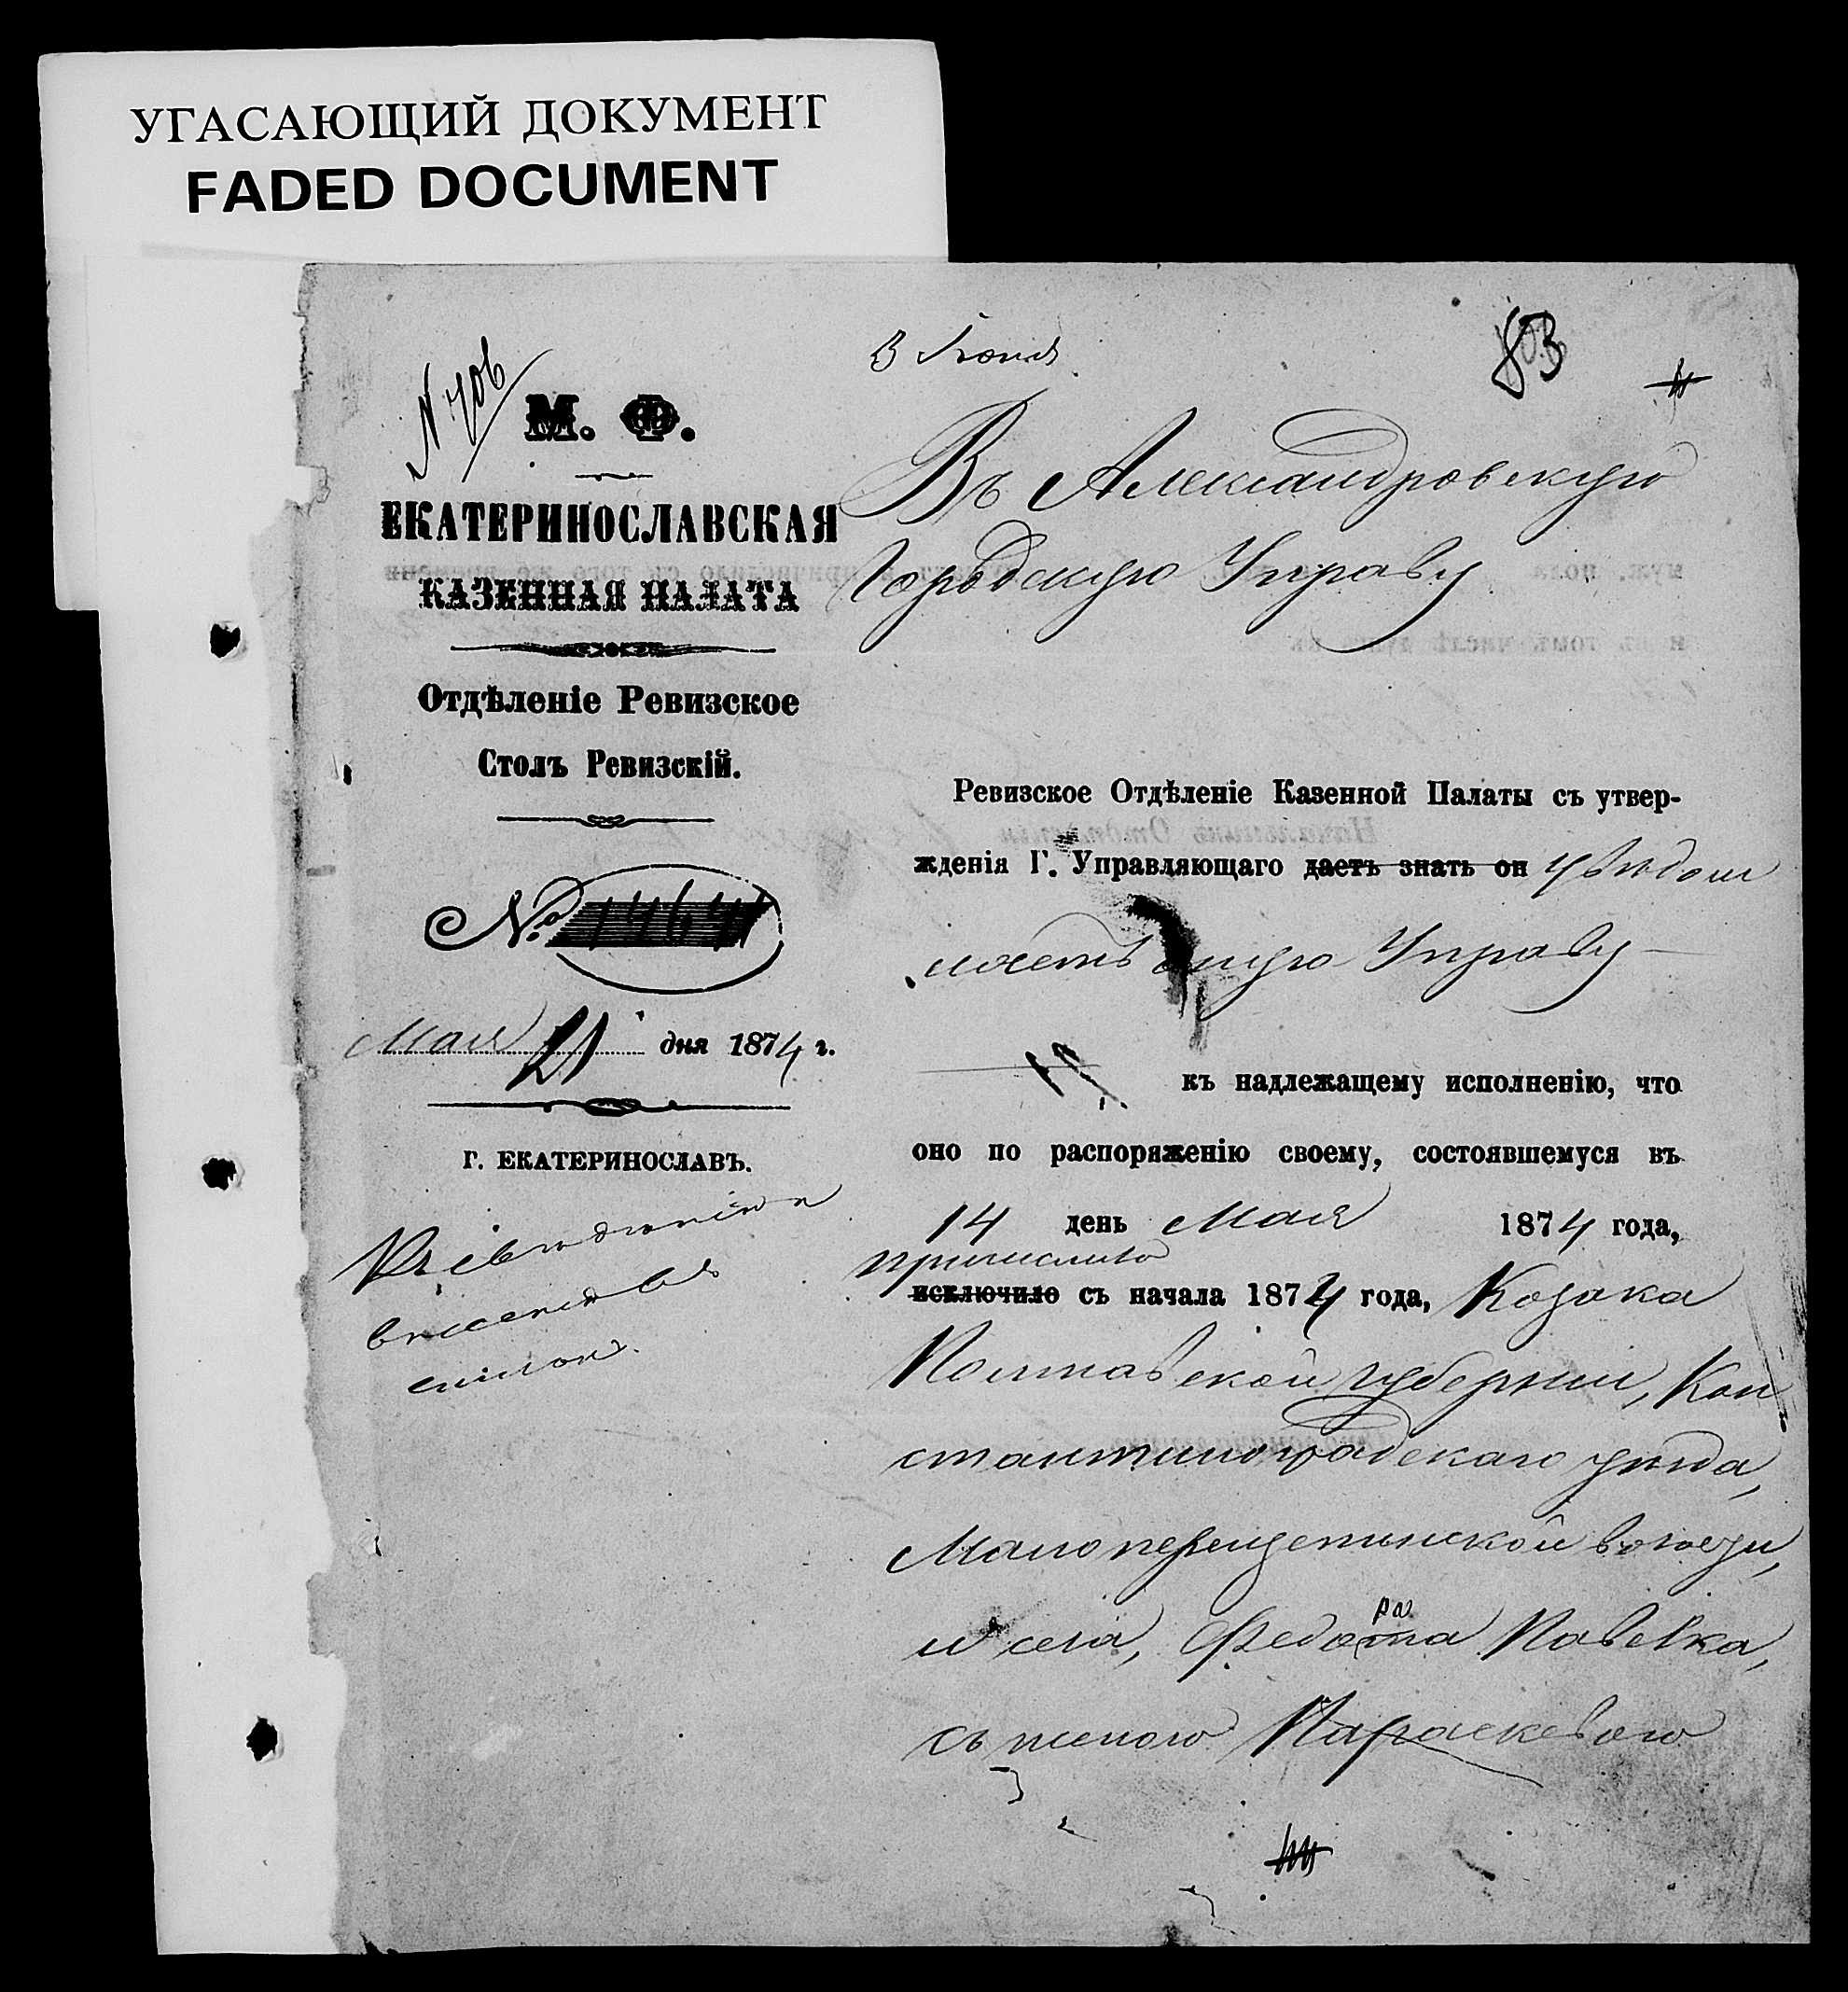 УГАСАЮЩИЙ ДОКУМЕНТ
FADED DOCUMENT
N 706
3 Іюня
83
М. Ф.
ЕКАТЕРИНОСЛАВСКАЯ
КАЗЕННАЯ ПАЛАТА
Отдѣленіе Ревизское
Столъ Ревизскій.
№ 14641
Мая 21 дня 1874 г.
Г. ЕКАТЕРИНОСЛАВЪ.
Въ Александровскую
Городскую Управу
Ревизское Отдѣленіе Казенной Палаты съ утвер-
жденія Г. Управляющаго даетъ знать он увѣдом
ляетъ оную Управу
къ надлежащему исполненію, что
оно по распоряженію своему, состоявшемуся въ
14 день Мая 1874 года,
причислило
исключило съ начала 1874 года, Козака
Полтавской губерніи, Кон
стантиноградскаго уѣзда,
Малоперещепинской волости,
и села, Федота Павелка,
ра
съ женою Параскевою